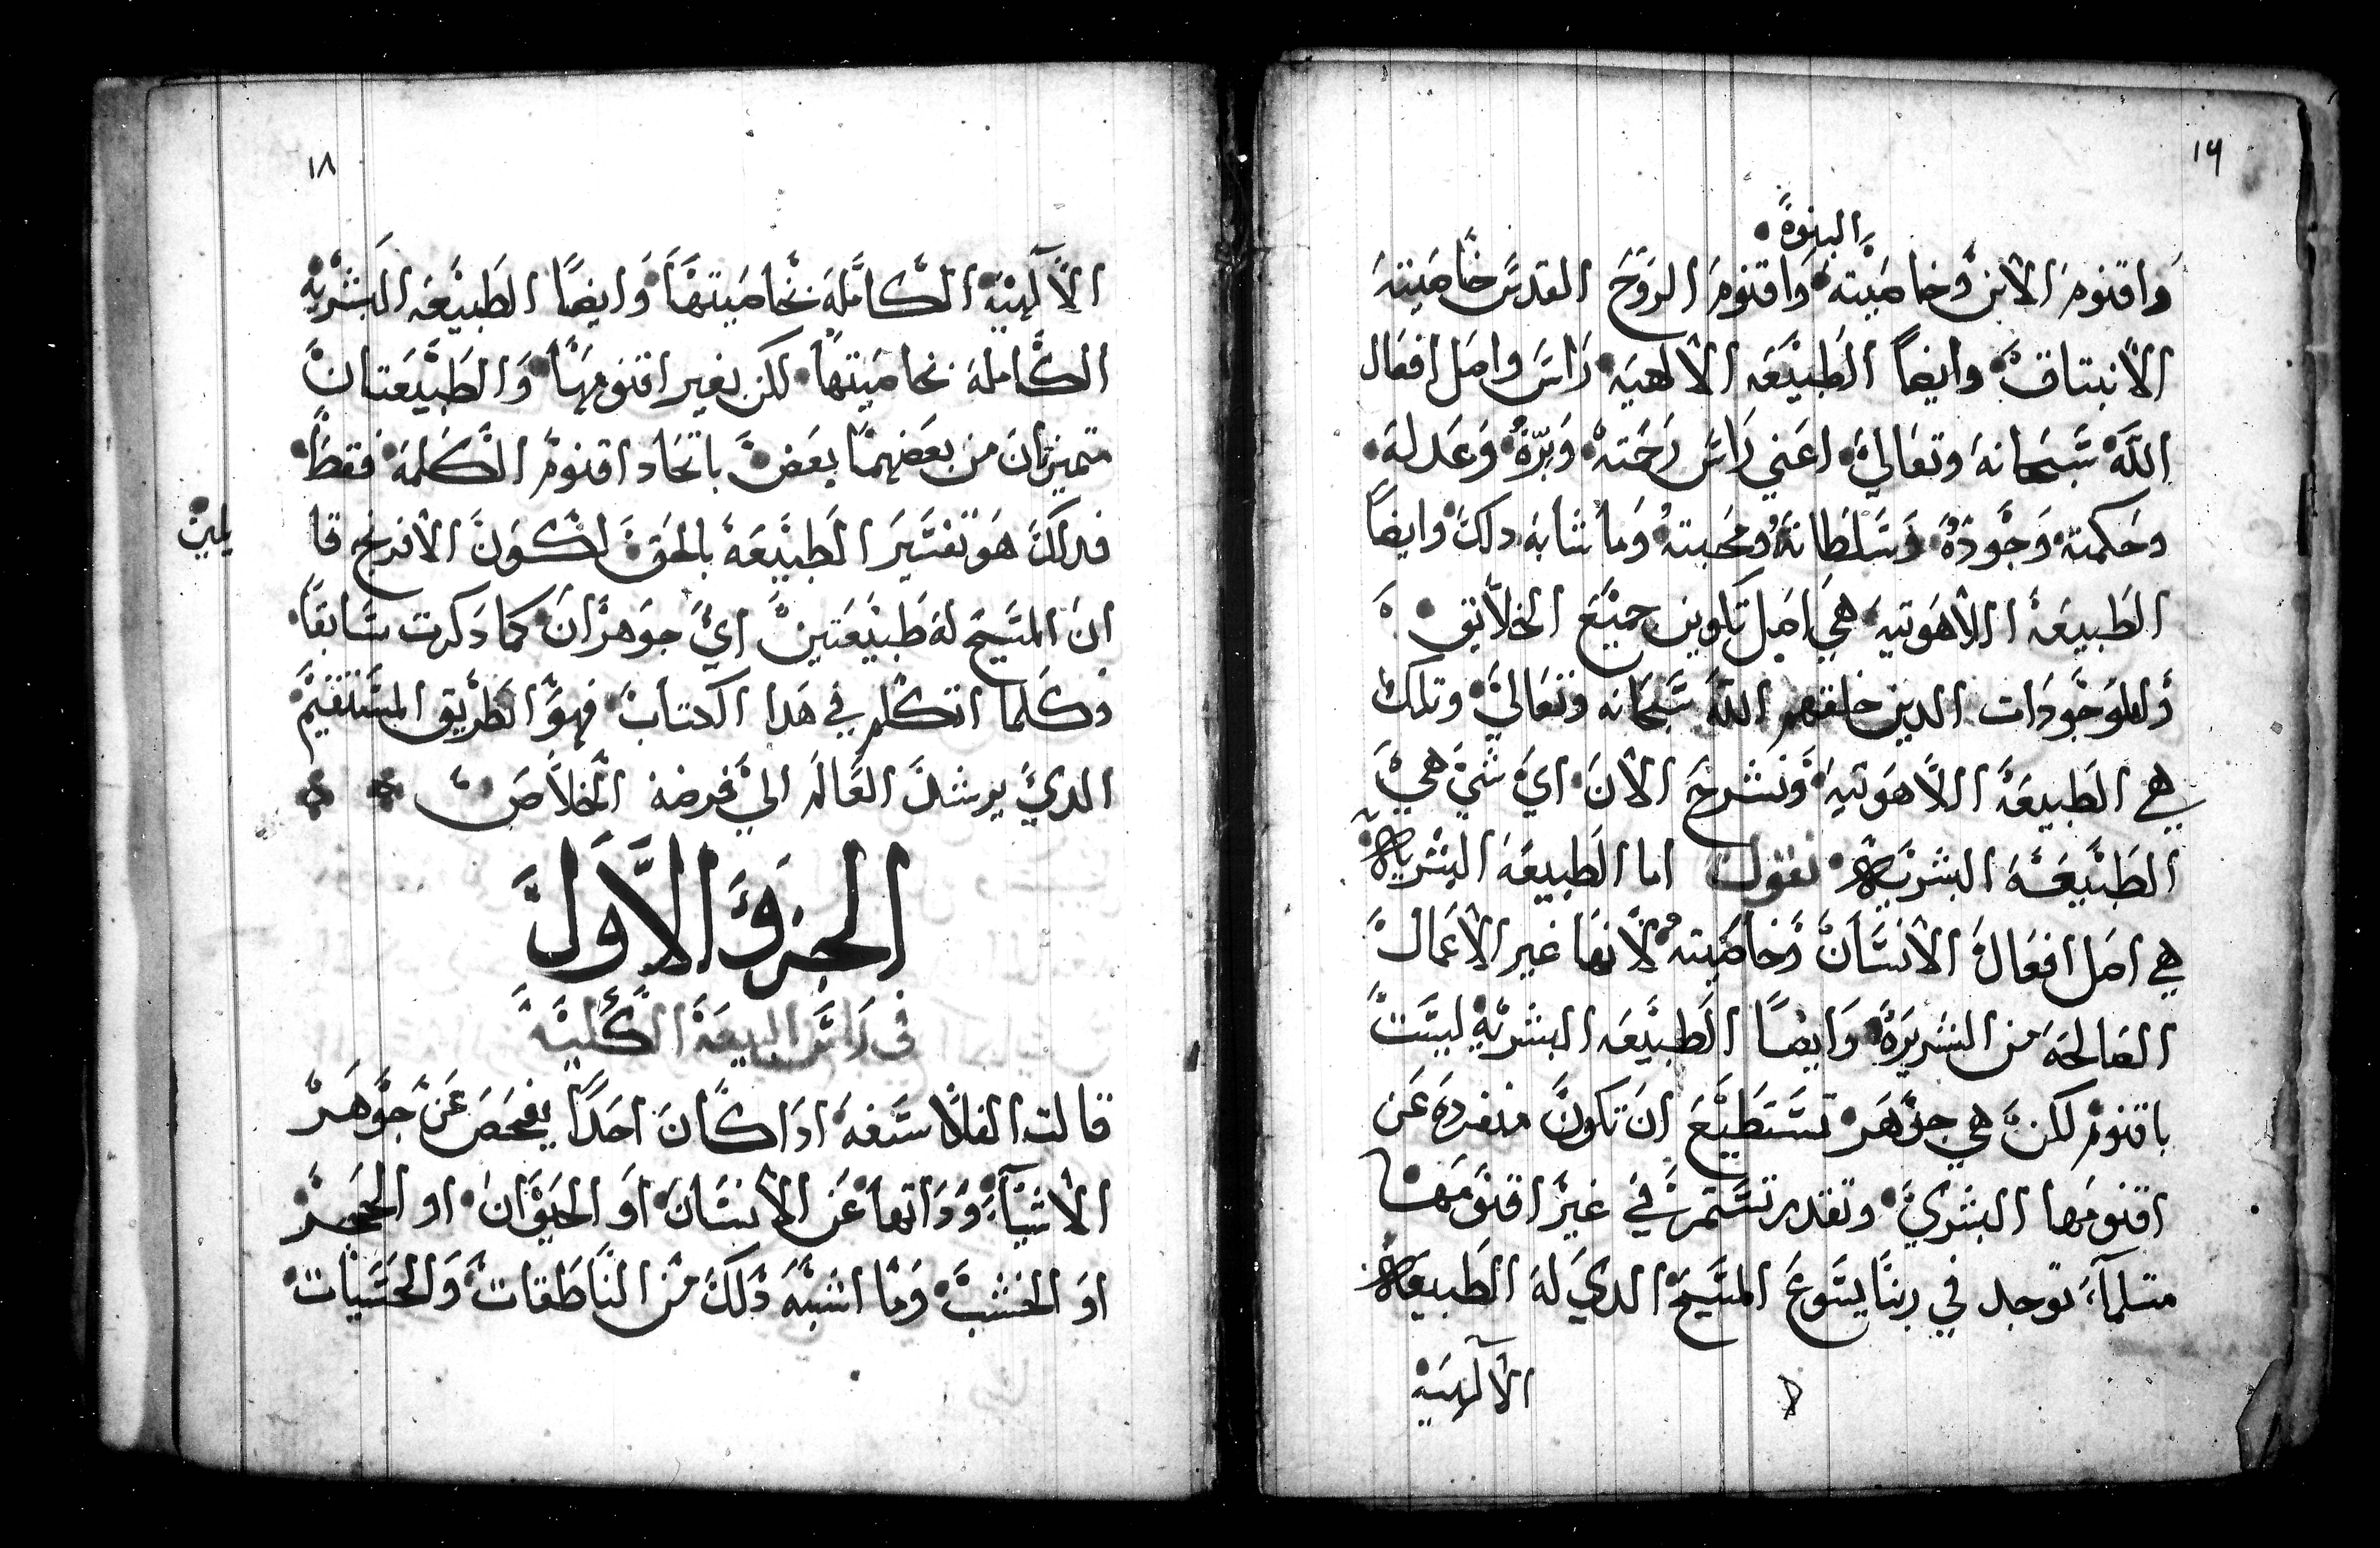 ١٦
البنوة
واقنوم الابن وخاصيته واقنوم الروح القدس خاصيته
الانبتاق وايضاً الطبيعه الالهيه راس واصل افعال
الله سبحانه وتعالي اعني راس رحمته وبره وعدله
وحكمته وجوده وسلطانه ومحبته وما شابه دلك وايضاً
الطبيعة اللاهوتيه هي اصل تكوين جميع الخلايق
والموجودات الدين خلقهم الله سبحانه وتعالي وتلك
هي الطبيعة اللاهوتيه ونشرح الان اي شي هي
الطبيعة البشرية نقول اما الطبيعة البشرية
هي اصل افعال الانسان وخاصيته لانها غير الاعمال
الصالحه من الشريرة وايضاً الطبيعه البشرية ليست
باقنوم لكن هي جوهر تستطيع ان تكون منفرده عن
اقنومها البشري وتقدر تستمر في غير اقنومها
متلما توجد في ربنا يسوع المسيح الدي له الطبيعة
الآلهية
١٨
الآلهية الكامله بخاصيتها وايضاً الطبيعه البشرية
الكامله بخاصيتها لكن بغير اقنومها والطبيعتان
متميزتان من بعضهما بعض باتحاد اقنوم الكلمه فقط
فدلك هو تفسير الطبيعة بالحق لكون الافرنج قا
يلين
ان المسيح له طبيعتين اي جوهران كما دكرت سابقاً
وكلما اتكلم في هدا الكتاب فهو الطريق المستقيم
الدي يرشد العالم الي فرضة الخلاص
الجزو الاول
في راس البيعة الكلية
قالت الفلاسفه ادا كان احداً يفحص عن جوهر
الاشياء ودواتها عن الانسان او الحيوان او الحجر
او الخشب وما اشبه دلك من الناطقات والحسيات